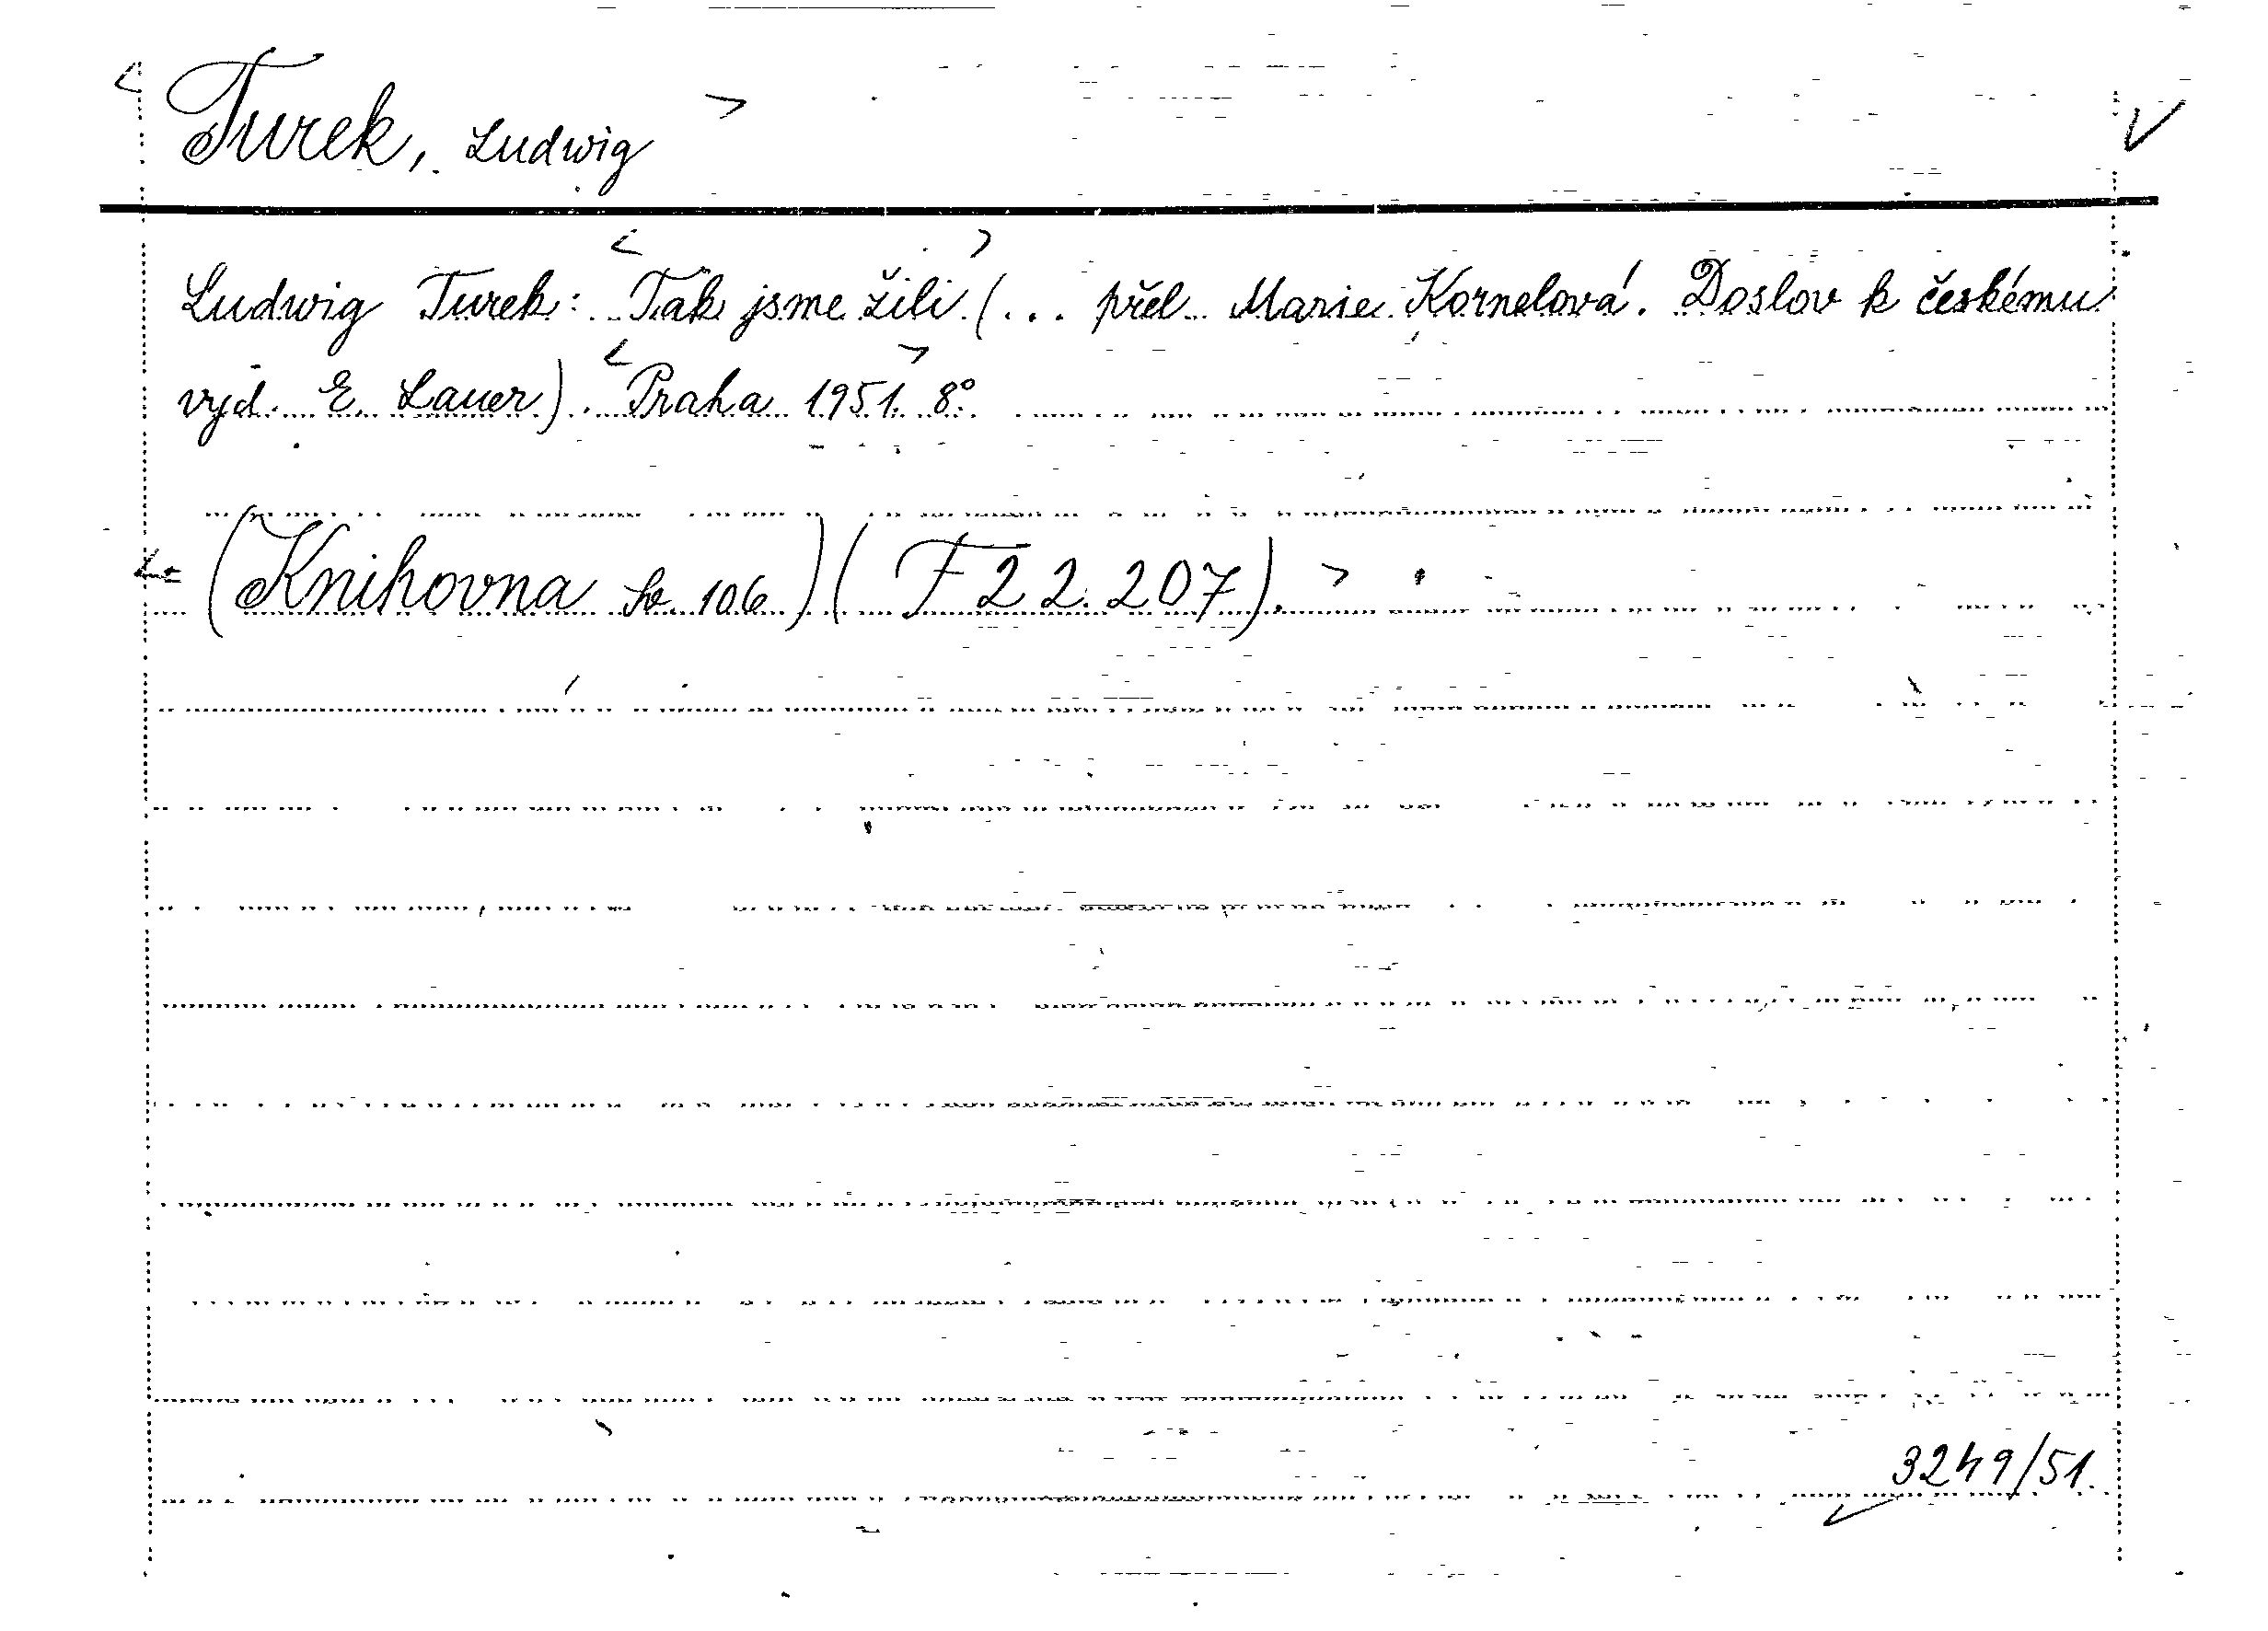 < Turek, Ludwig > V
Ludwig Turek: <Tak jsme žili> (... přel. Marie Kornelová. Doslov k českému
vyd. E. Lauer). <Praha 1951.> 8°.
< (Knihovna sv. 106) (F 22.207). >
3249/51.